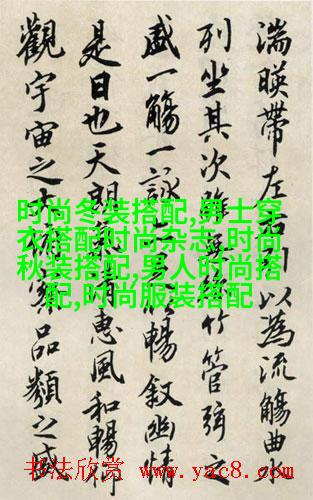 湍暎帶左右引以為流觴曲
列坐其次雖無竹管弦之
盛一觴一詠暢敘幽情
是日也天朗惠風和暢仰
觀宇宙之大品類之盛
时尚冬装搭配,男士穿
衣搭配时尚杂志,时尚
秋装搭配,男人时尚搭
配,时尚服装搭配
书法欣赏 www.yac8.com